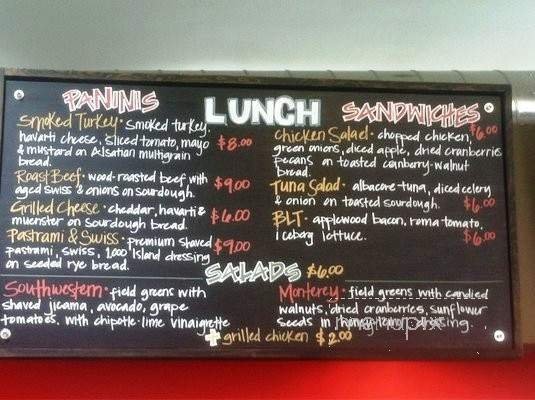 LUNCH
PANINIS
Smoked Turkey · smoked turkey,
havarti cheese, sliced tomato, mayo
& mustard on Alsatian multigrain
bread.
$8.00
Roast Beef · wood-roasted beef with
aged Swiss & onions on sourdough.
$9.00
Grilled Cheese · cheddar, havarti &
muenster on sourdough bread.
$6.00
Pastrami & Swiss · premium shaved
pastrami, swiss, 1,000 island dressing
on seeded rye bread.
$9.00
SANDWICHES
Chicken Salad · chopped chicken,
$6.00
green onions, diced apple, dried cranberries
pecans on toasted cranberry-walnut
bread.
Tuna Salad · albacore tuna, diced celery
& onion on toasted sourdough.
$6.00
BLT · applewood bacon, roma tomato,
iceberg lettuce.
$6.00
SALADS $6.00
Southwestern · field greens with
shaved jicama, avocado, grape
tomatoes, with chipotle-lime vinaigrette
Monterey · field greens with candied
walnuts, dried cranberries, sunflower
seeds in
+ grilled chicken $2.00